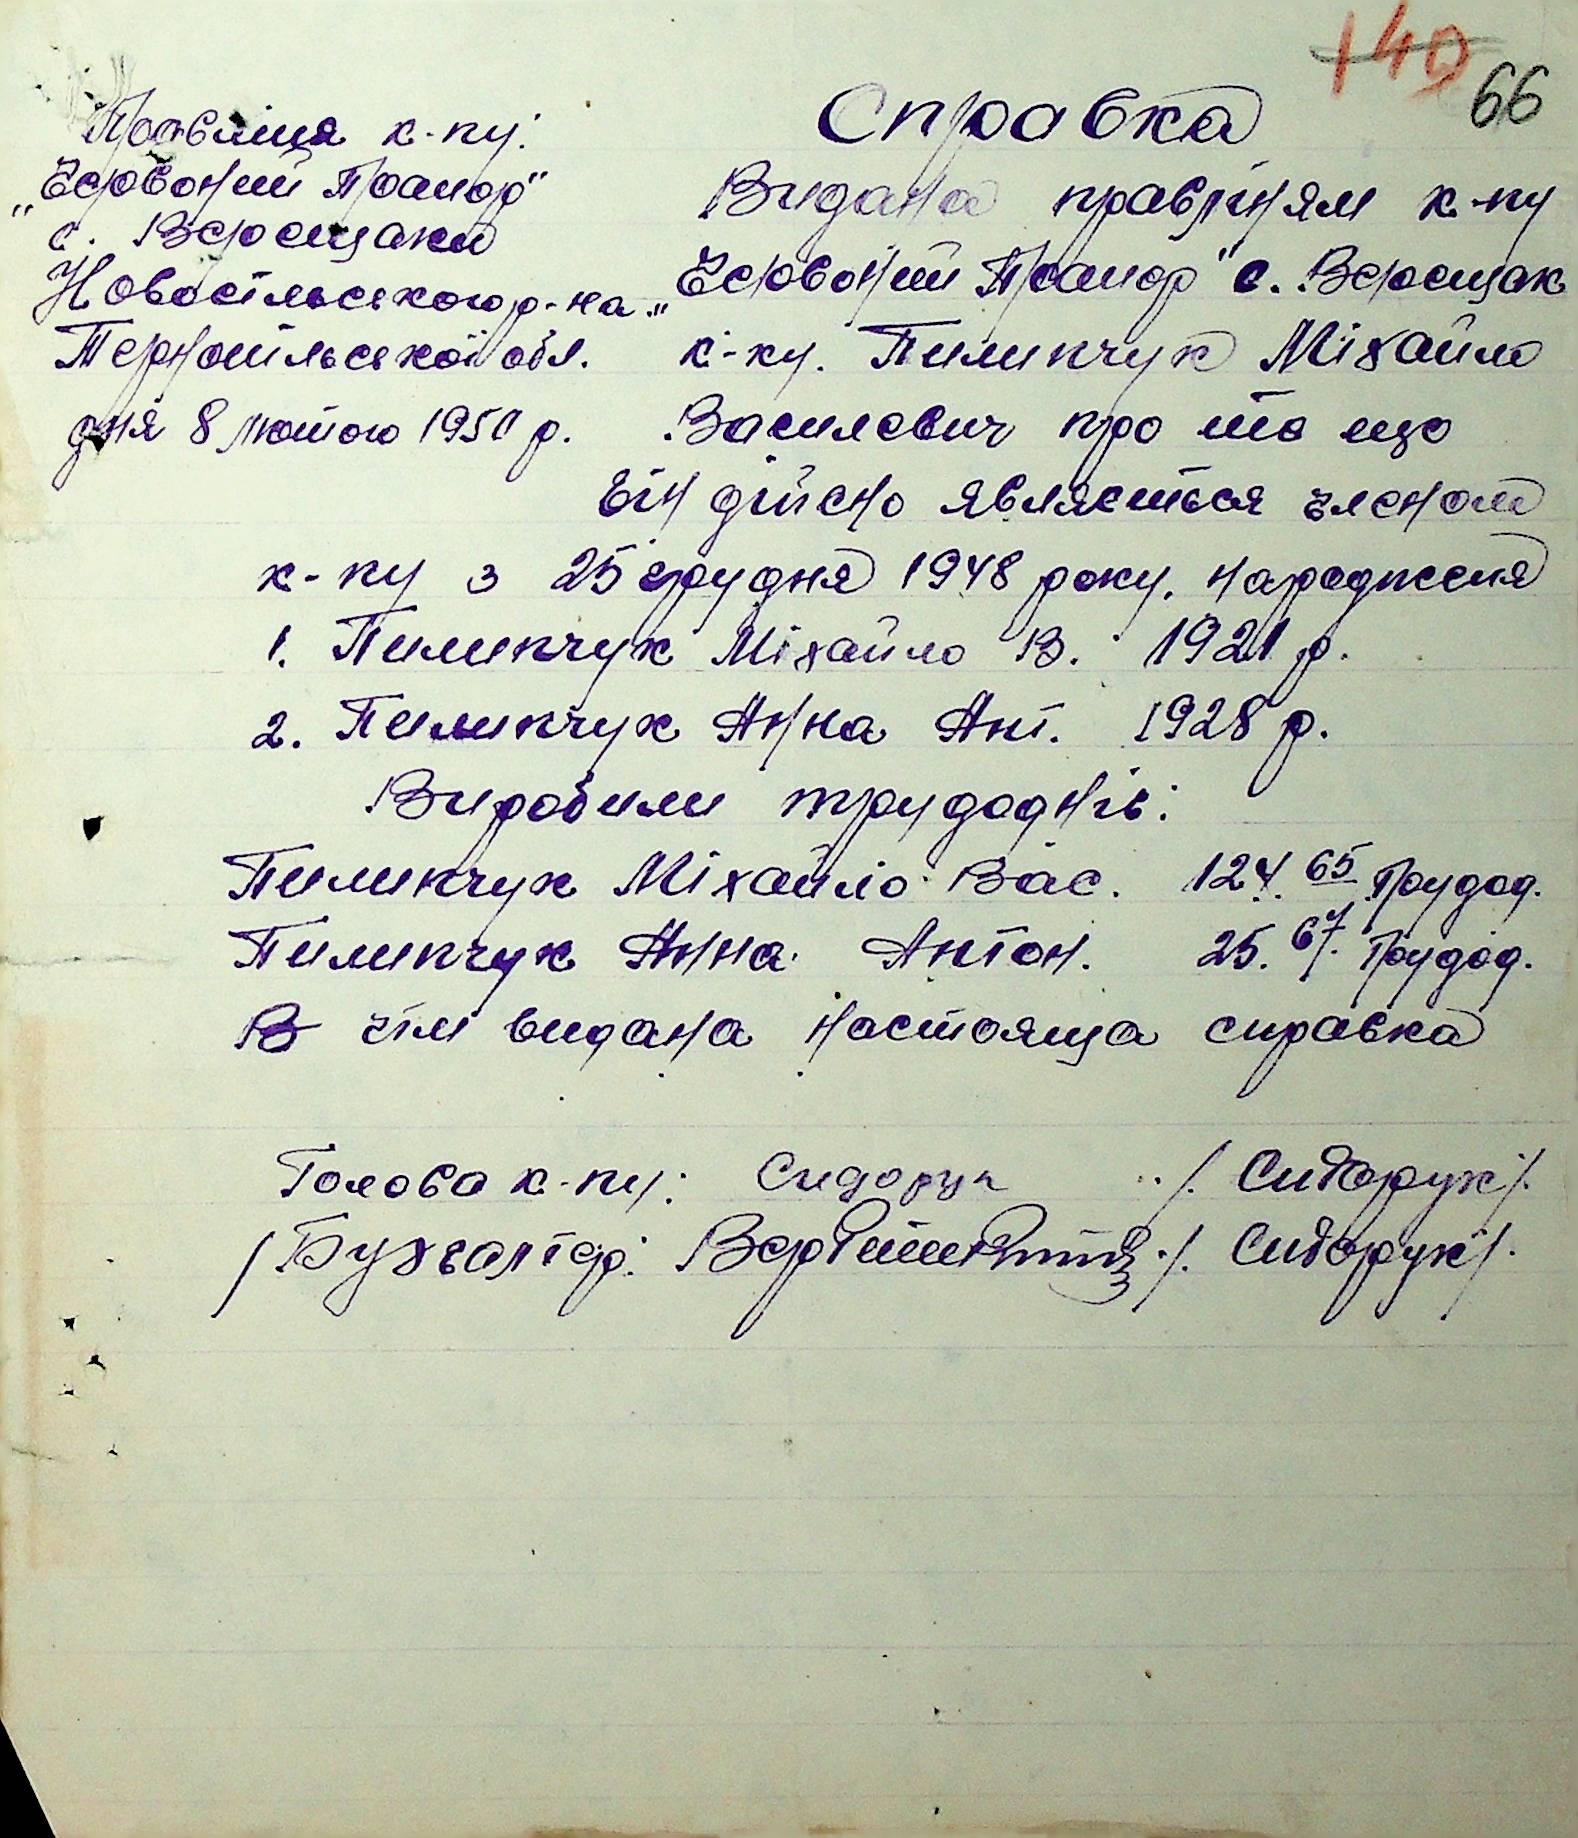 140 66
Справка
Правліня к-пу:
"Червоний Прапор"
с. Верещаки
Новосільського р-на
Тернопільської обл.
дня 8 лютого 1950 р.
Видана правліням к-пу
"Червоний Прапор" с. Верещак
к-ку. Пилипчук Міхайло
Василевич про те що
він дійсно являється членом
к-пу з 25 грудня 1948 року. народженя
1. Пилипчук Міхайло В. 1921 р.
2. Пилипчук Анна Ант. 1928 р.
Виробили трудоднів:
Пилипчук Міхайло Вас. 124.65 Трудод.
Пилипчук Анна Антон. 25.67. Трудод.
В чім видана настояща справка
Голова к-пу: Сидорук /. Сидорук/.
/ Бухгалтер: /. Сидорук/.